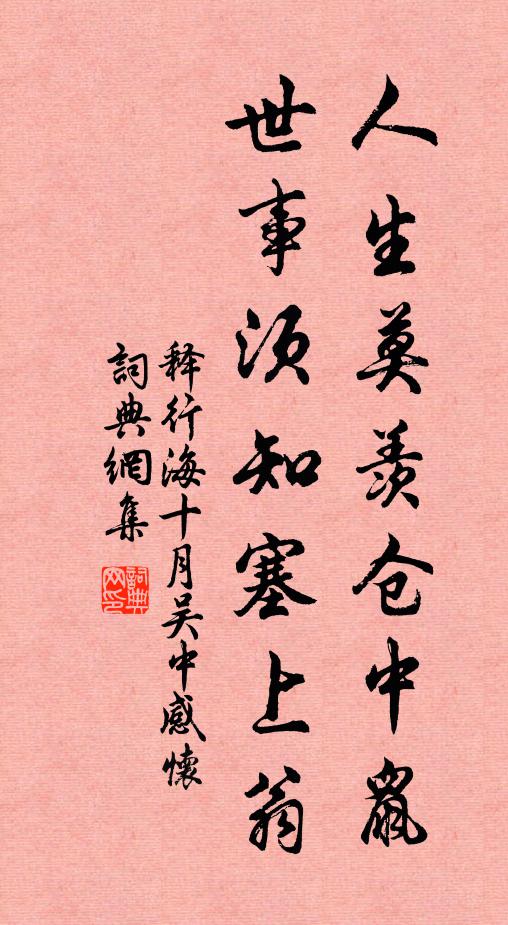 人生莫羡仓中鼠
世事须知塞上翁
释行海十月吴中感懷
詞典網集
詞典网印